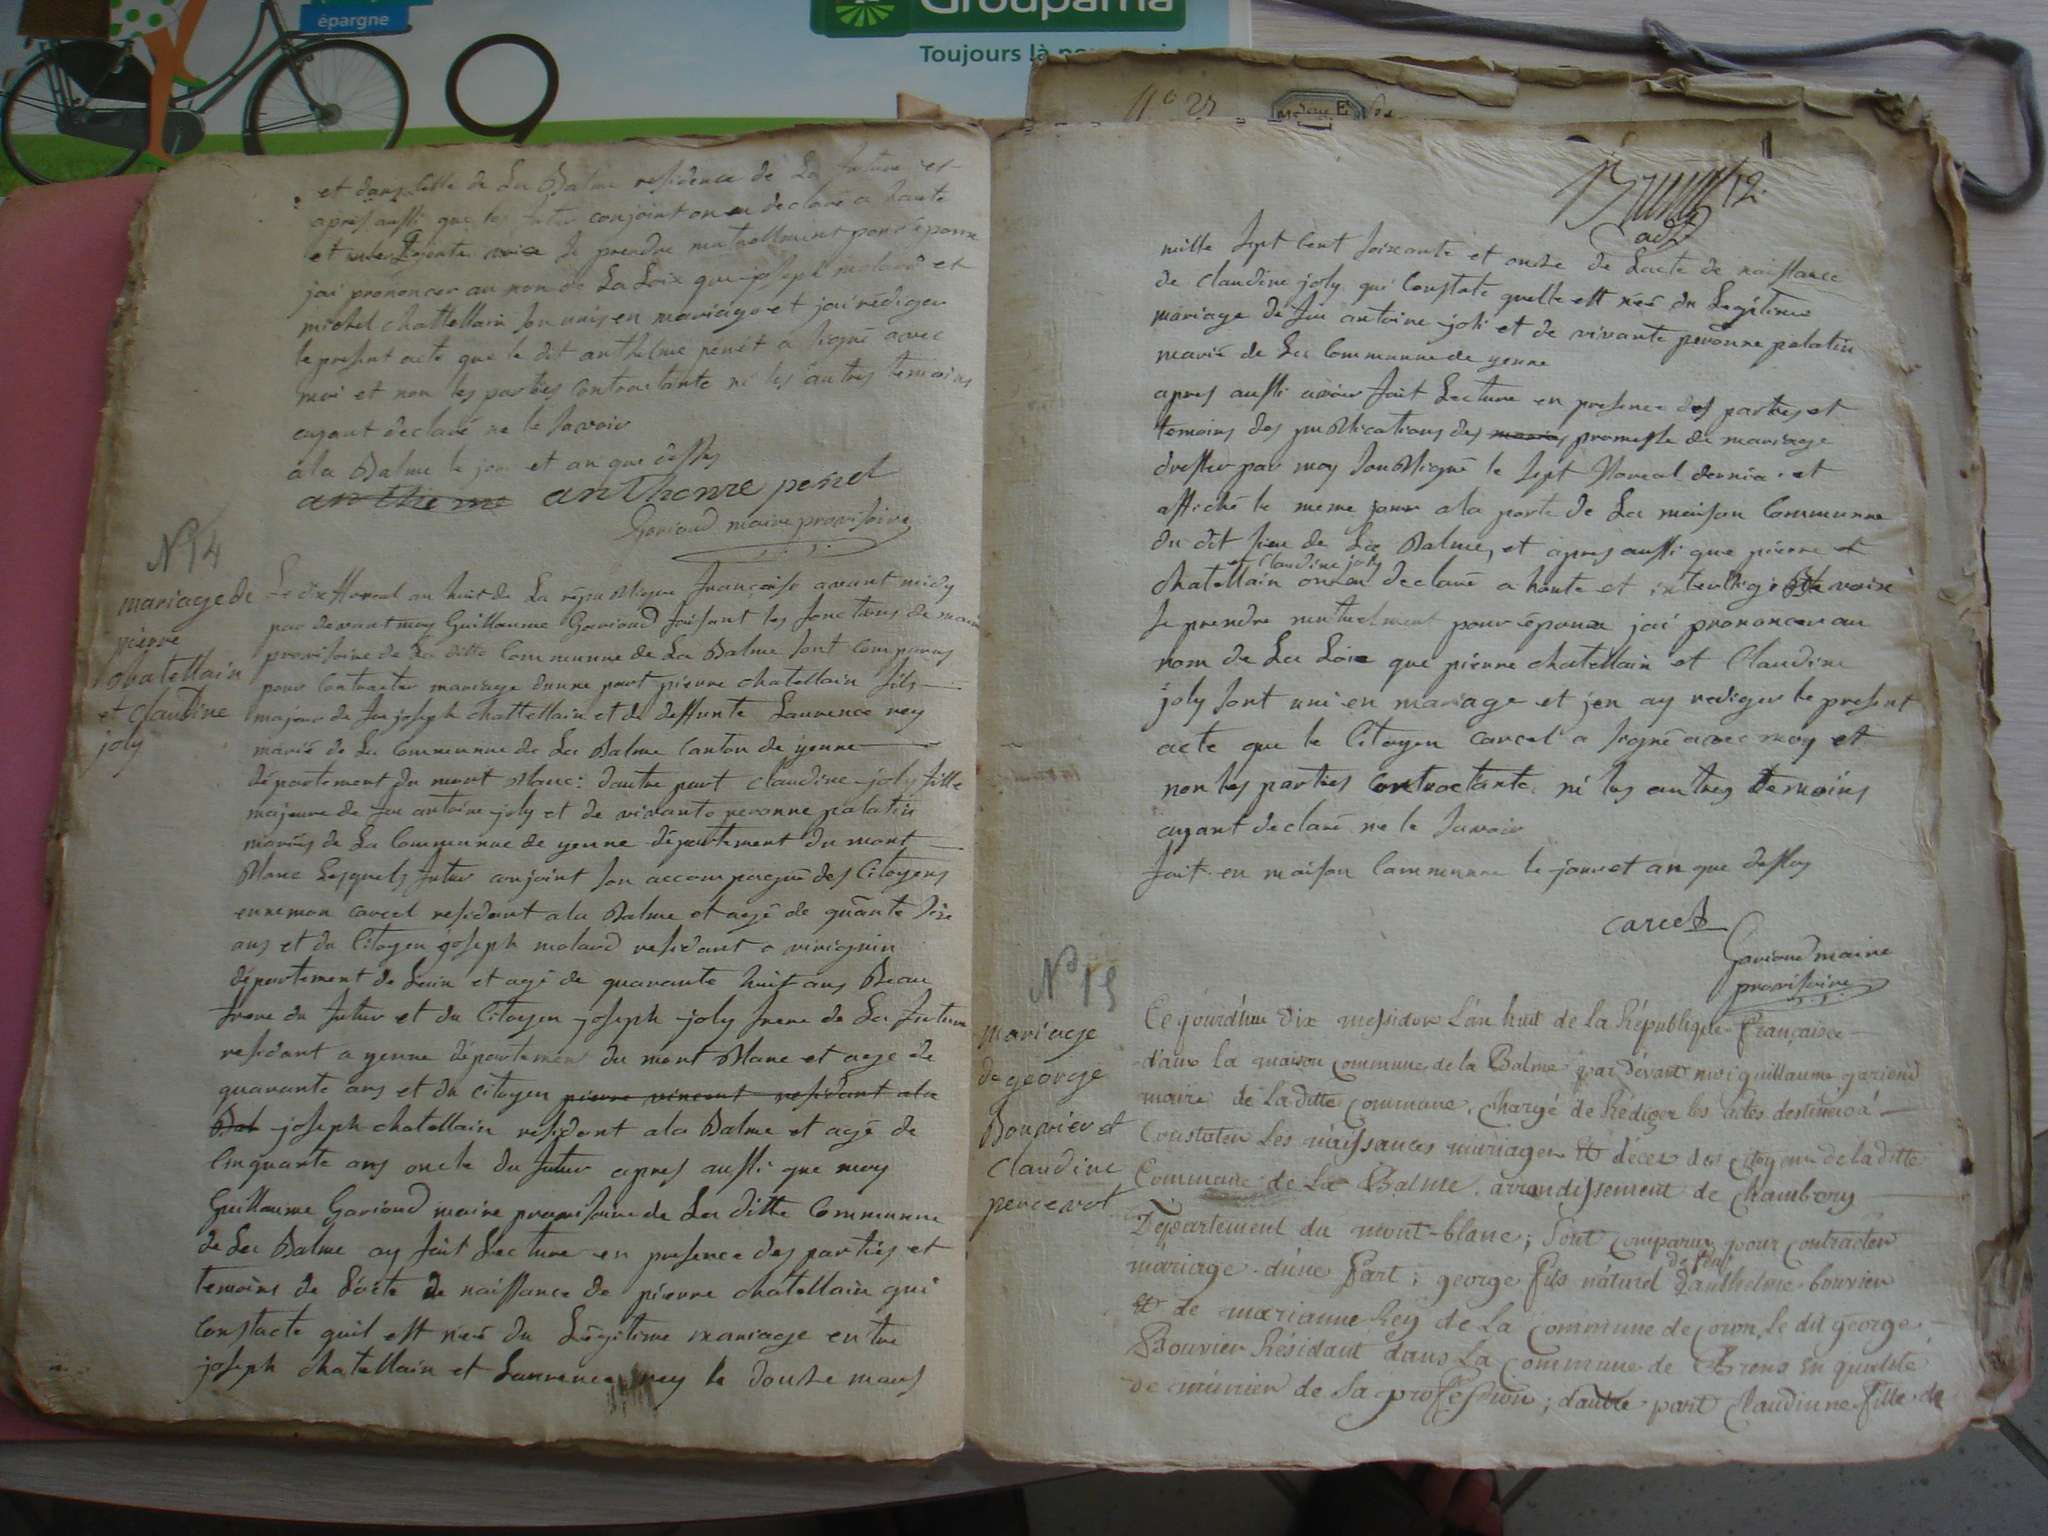 épargne
Groupama
Toujours là
9
et dans celle de La Balme residence de La future et
apres aussi que les futur conjoint on en declaré a haute
et se prendre mutuellement pour épouse
jai prononcer au nom de La Loix que joseph molard et
michel chattellain son unis en mariage et jai rédiger
le present acte que le dit anthelme penet a signé avec
moi et non les parties contractante ni les autres temoins
ayant declaré ne le savoir
a la Balme le jour et an que dessus
anthelme penet
Garioud maire provisoire
N 14
mariage de
pierre
chatellain
et claudine
joly
Le dix floreal an huit de La republique françaises avant midy
par devant moy Guillaume Gariond faisant les fonctions de maire
provisoire de La ditte Commune de La Balme sont comparus
pour contracter mariage dunne part pierre chatellain fils
majeur de feu joseph chattellain et de deffunte Laurence rey
mariés de La Commune de La Balme Canton de yenne
département du mont Blanc : dautre part claudine joly fille
majeure de feu antoine joly et de vivante peronne palatin
mariés de La Commune de yenne département du mont
Blanc Lesquels futur conjoint son accompagné des Citoyens
ennemon carcel residant a la Balme et agé de
ans et du Citoyen joseph molard residant a virignin
département de Leuin et agé de quarante huit ans Beau
frere du futur et du Citoyen joseph joly frere de La future
residant a yenne département du mont Blanc et age de
quarante ans et du citoyen pierre vincent residant a la
Bal joseph chatellain residant a la Balme et agé de
Cinquante ans oncle du futur apres aussi que moy
Guillaume Gariond maire provisoire de La ditte Commune
de La Balme ay fait Lecture en presence des parties et
temoins de Lacte de naissance de pierre chatellain qui
constacte quil est néé du Légitime mariage entre
joseph chatellain et Laurence rey le douze mars
N° 25
12
mille sept Cent soixante et onze de Lacte de naissance
de claudine joly qui Constate quelle est néé du Legitime
mariage de feu antoine joli et de vivante peronne palatin
marié de La Commune de yenne
apres aussi avoir fait Lecture en presence des parties et
temoins des publications des promesse de mariage
dresser par moy soussigné le sept floreal dernier et
affiché le meme jour a la porte de La maison Commune
du dit lieu de La Balme, et apres aussi que pierre
et claudine joly
chatellain on en declaré a haute et intelligible voix
se prendre mutuelment pour époux jai prononcer au
nom de La Loix que pierre chatellain et Claudine
joly sont uni en mariage et jen ay rediger le present
acte que le Citoyen carcel a signé avec moy et
non les parties contractante ni les autres temoins
ayant declaré ne le savoir
fait en maison Commune le jour et an que dessus
carcel
Gariond maire
provisoire
N° 15
mariage
de george
Bouvier et
Claudine
percevot
Ce jourd'hui dix messidor L'an huit de la République Française
dans la maison commune de la Balme par dévant moi guillaume gariond
maire de La ditte commune, chargé de Rédiger les actes destinés à
Constater Les naissances mariages et décès des citoyens de la ditte
Commune de La Balme, arrondissement de Chambery
Département du mont-blanc ; sont comparus pour contracter
mariage d'une Part ; george fils náturel d'anthelme bouvier
et de marianne Rey de La commune de Le dit george
Bouvier Résidant dans La commune de Brens en qualité
de meunier de sa profession ; dautre part Claudinne fille de